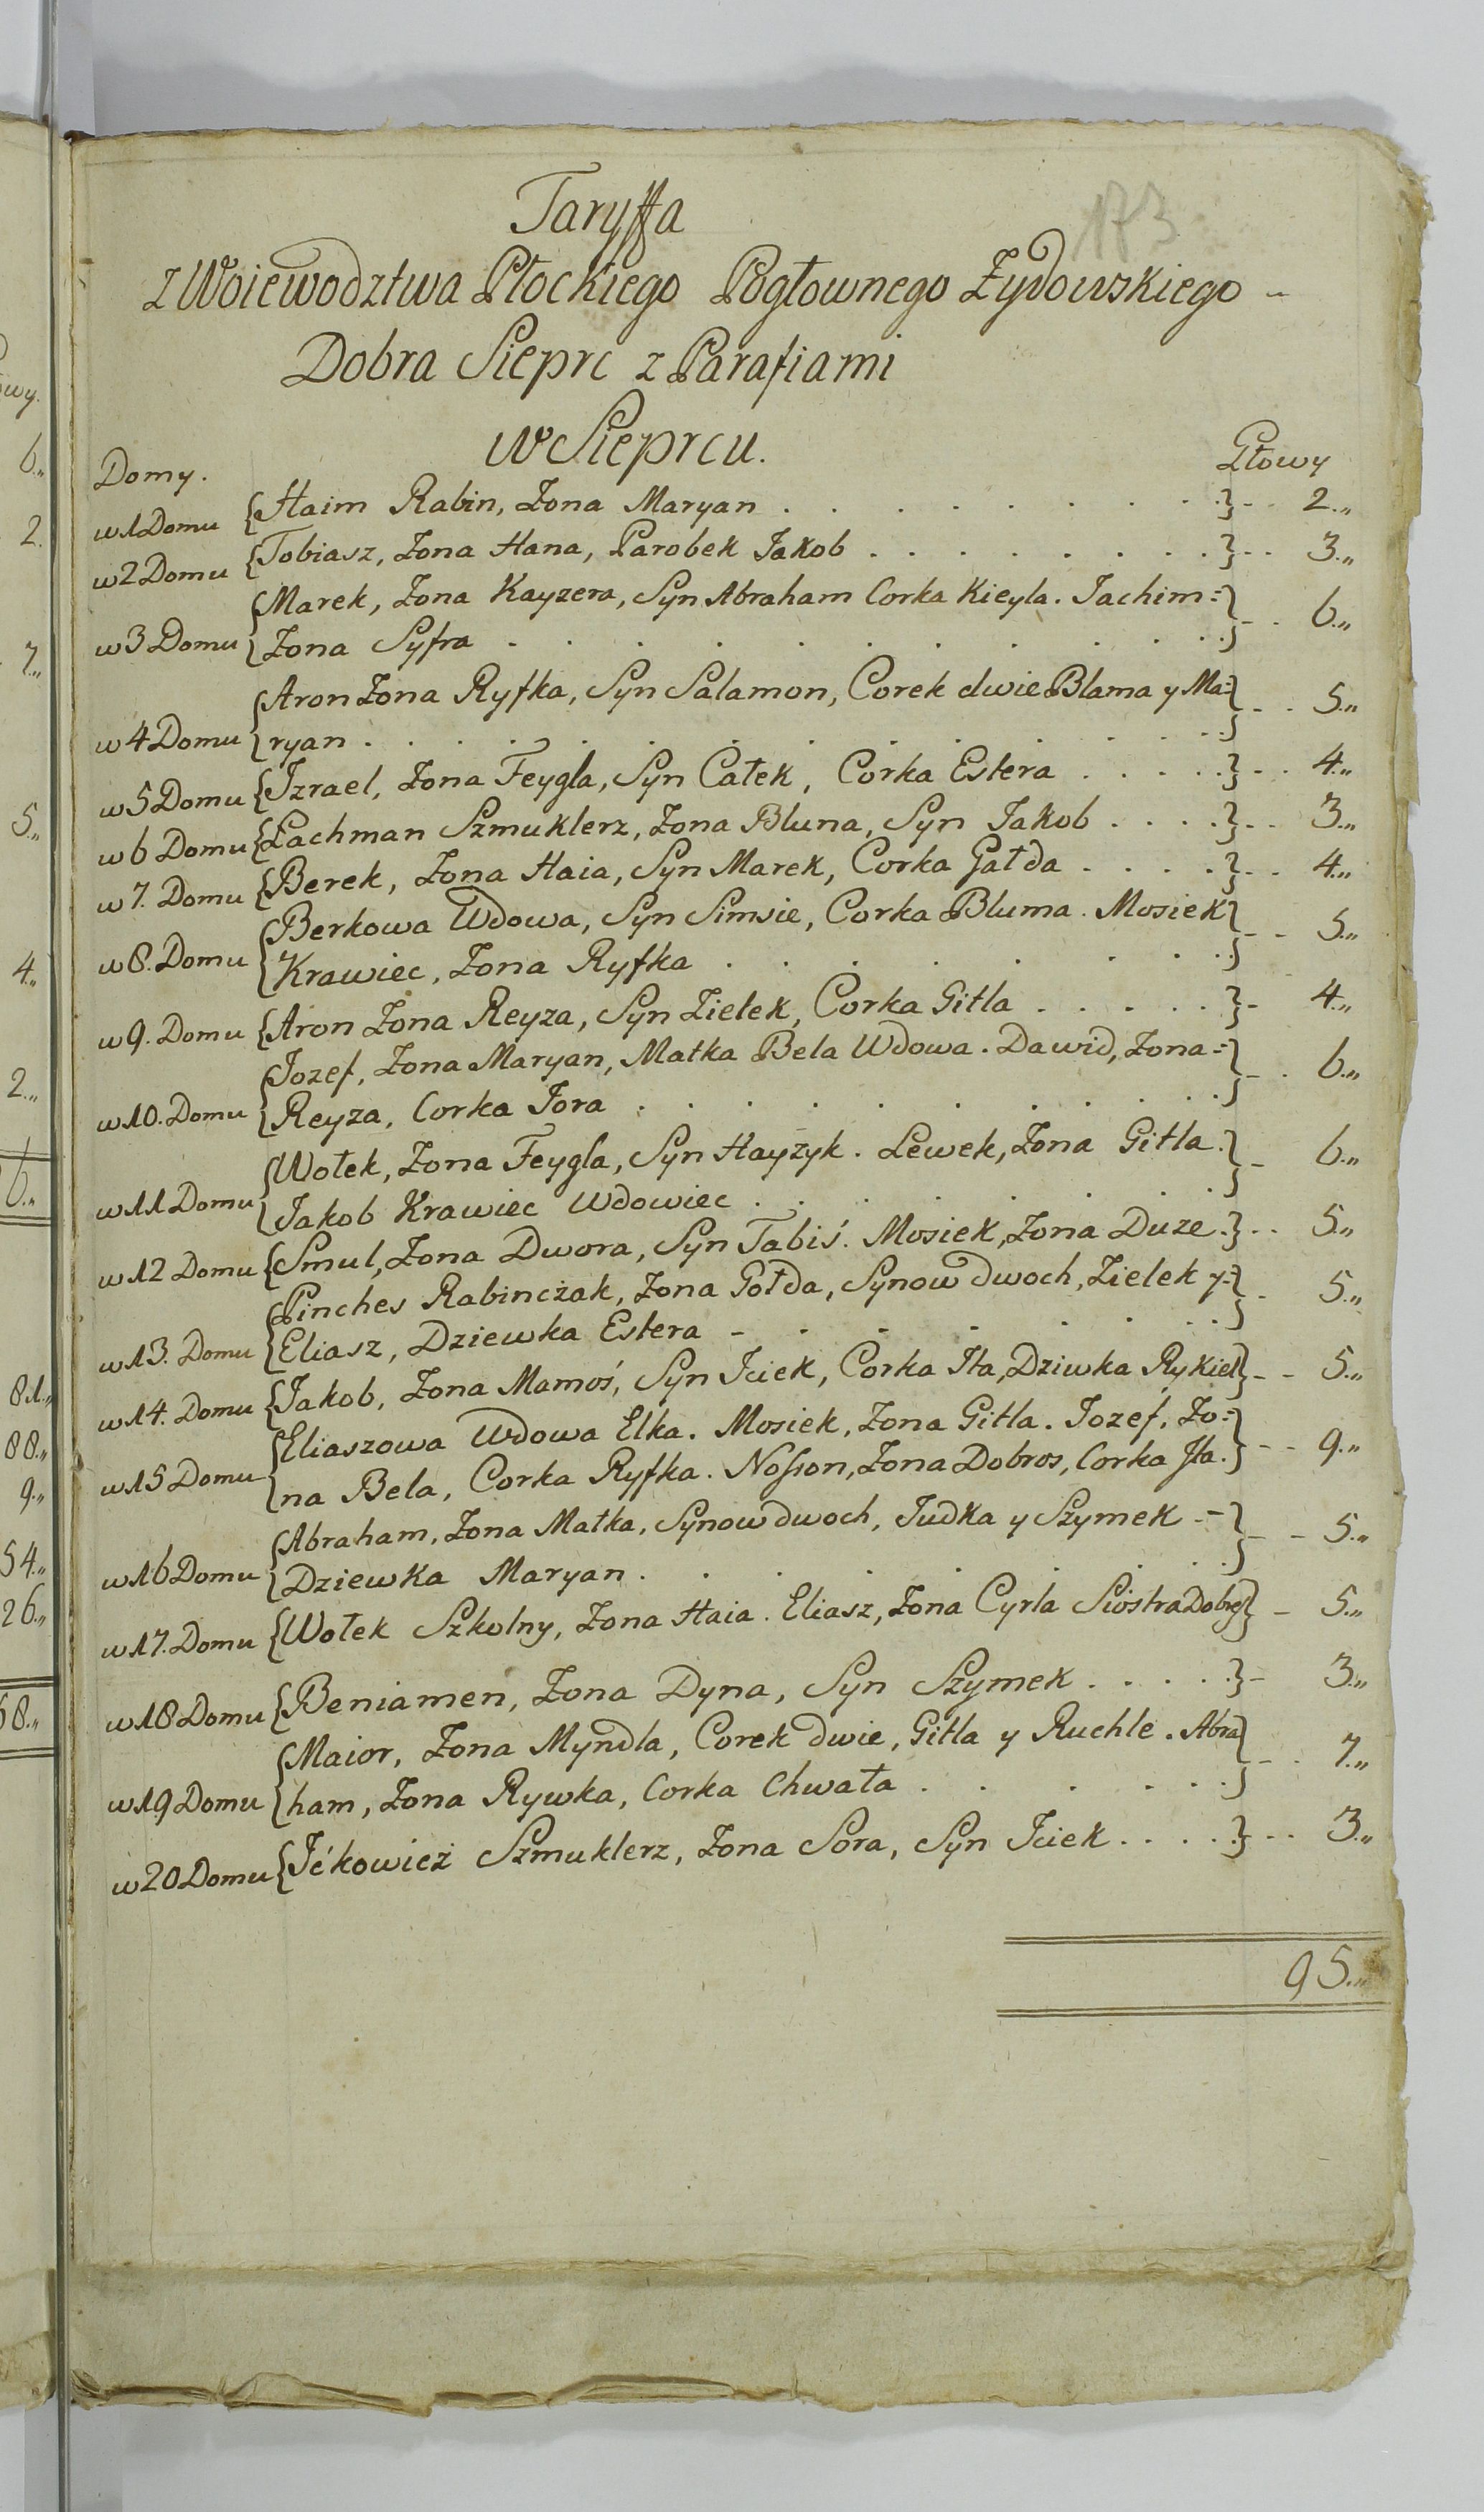 173
Taryffa
z Woiewodztwa Płockiego Pogłownego Żydowskiego -
Dobra Sieprc z Parafiami
w Sieprcu.
Domy. Głowy
w 1 Domu {Haim Rabin, Zona Maryan . . . . . . . . .} - - 2.„
w 2 Domu {Tobiasz, Zona Hana, Parobek Jakob . . . . . . . .} - - 3.„
{Marek, Zona Kayzera, Syn Abraham Corka Kieyla. Jachim =}
w 3 Domu {Zona Syfra . . . . . . . . . . .} - - 6.„
{Aron Zona Ryfka, Syn Salamon, Corek dwie Blama y Ma=}
w 4 Domu {ryan . . . . . . . . . . . . .} - - 5.„
w 5 Domu {Izrael, Zona Feygla, Syn Całek, Corka Estera . . . . .} - - 4.„
w 6 Domu {Lachman Szmuklerz, Zona Bluna, Syn Jakob . . . .} - - 3.„
w 7. Domu {Berek, Zona Haia, Syn Marek, Corka Gałda . . . . .} - - 4.„
{Berkowa Wdowa, Syn Simsie, Corka Bluma. Mosiek}
w 8. Domu {Krawiec, Zona Ryfka . . . . . . . .} - - 5.„
w 9. Domu {Aron Zona Reyza, Syn Zielek, Corka Gitla . . . . .} - 4.„
{Jozef, Zona Maryan, Matka Bela Wdowa. Dawid, Zona =}
w 10. Domu {Reyza, Corka Jora . . . . . . . . . .} - - 6.„
{Wołek, Zona Feygla, Syn Hayzyk. Lewek, Zona Gitla.}
w 11 Domu {Jakob Krawiec Wdowiec . . . . . . . .} - 6.„
w 12 Domu {Smul, Zona Dwora, Syn Tabiś. Mosiek, Zona Duze.} - - 5.„
{Pinches Rabinczak, Zona Gołda, Synow dwoch, Zielek y =}
w 13. Domu {Eliasz, Dziewka Estera - . . . . . . .} - 5.„
w 14. Domu {Jakob, Zona Mamoś, Syn Iciek, Corka Ita, Dziwka Rykiel} - - 5.„
{Eliaszowa Wdowa Elka. Mosiek, Zona Gitla. Jozef, Zo=}
w 15 Domu {na Bela, Corka Ryfka. Nosson, Zona Dobros, Corka Ita.} - - 9.„
{Abraham, Zona Matka, Synow dwoch, Judka y Szymek - -}
w 16 Domu {Dziewka Maryan . . . . . . . .} - - 5.„
w 17. Domu {Wołek Szkolny, Zona Haia. Eliasz, Zona Cyrla Siostra} - 5.„
w 18 Domu {Beniamen, Zona Dyna, Syn Szymek . . . . .} - 3.„
{Maior, Zona Myndla, Corek dwie, Gitla y Ruchle. Abra}
w 19 Domu {ham, Zona Rywka, Corka Chwała . . . . . .} - - 7.„
w 20 Domu {Ićkowicz Szmuklerz, Zona Sora, Syn Iciek . . . .} - - 3.„
95.„